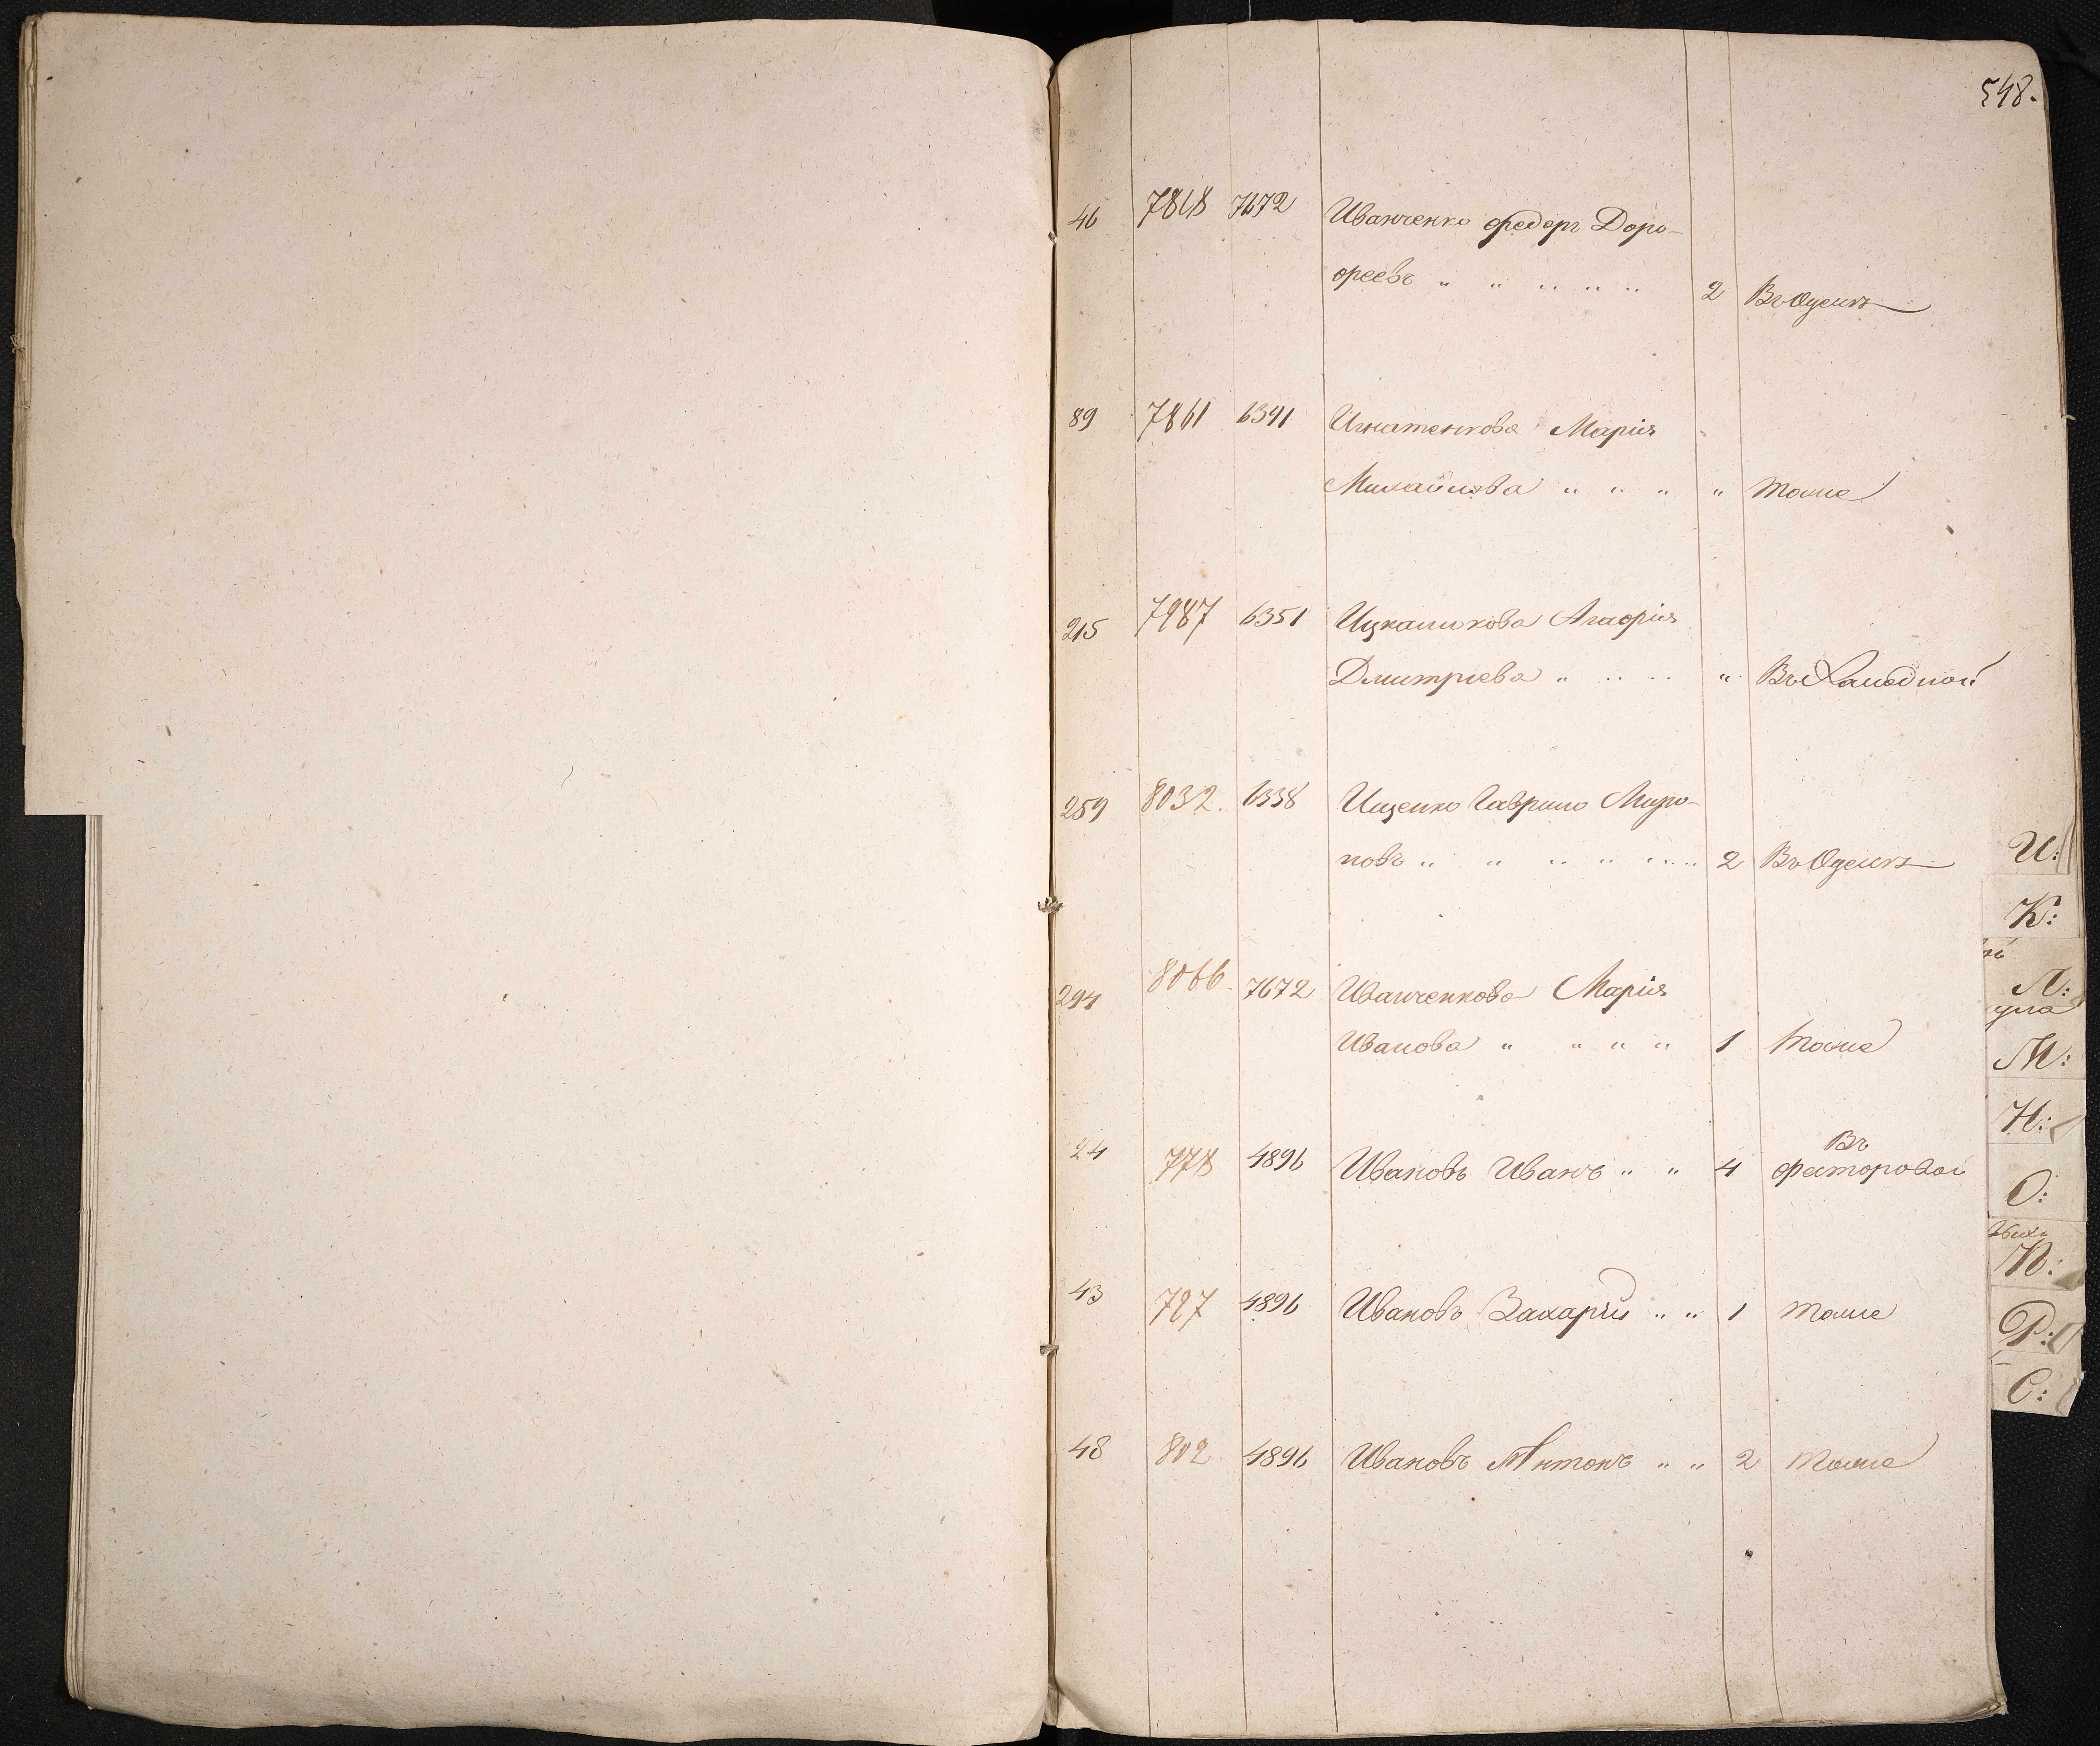 548.
46 7818 7672 Иванченко Федоръ Доро-
феевъ " " " " " 2 Въ Одессѣ
89 7861 6391 Игнатенкова Марія
Михайлова " " " " тоже
215 7987 6351 Ицкаликова Агафія
Дмитріева " " " "
259 8032. 6338 Ищенко Гаврило Миро-
новъ " " " " " 2 Въ Одессѣ
294 8066. 7672 Иванченкова Марія
Иванова " " " " 1 тоже
Въ
24 778 4896 Ивановъ Иванъ " " 4
43 797 4896 Ивановъ Захарій " " 1 тоже
48 802 4896 Ивановъ Антонъ " " 2 тоже
И:
К:
Л:
М:
Н:
О:
П:
Р:
С: